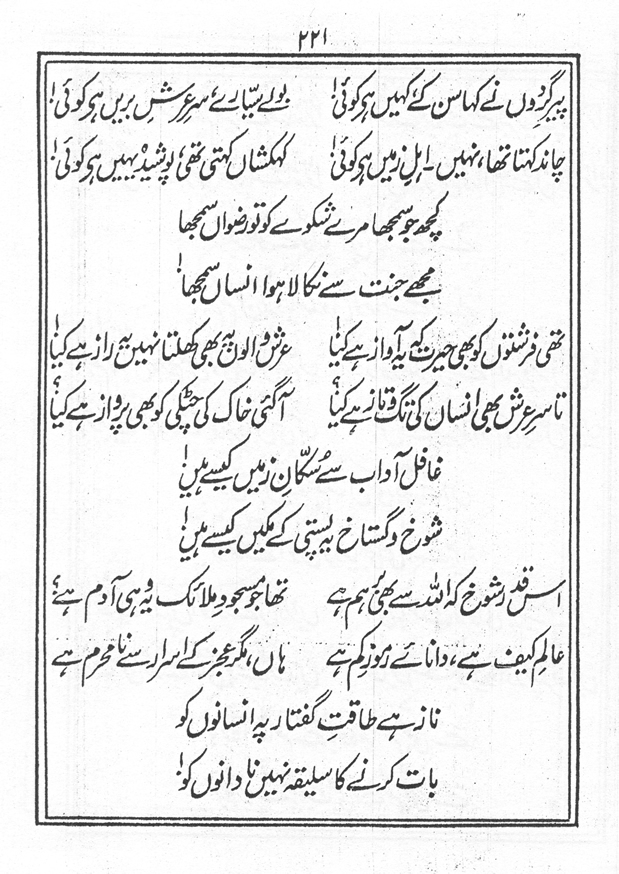 ۲۲۱
پیرِ گردُوں نے کہا سن کے، کہیں ہے کوئی! بولے سیّارے، سرِ عرشِ بریں ہے کوئی!
چاند کہتا تھا، نہیں۔ اہلِ زمیں ہے کوئی! کہکشاں کہتی تھی، پوشیدہ یہیں ہے کوئی!
کچھ جو سمجھا مرے شکوے کو تو رضواں سمجھا
مجھے جنت سے نکالا ہوا انساں سمجھا!
تھی فرشتوں کو بھی حیرت کہ یہ آواز ہے کیا! عرش والوں پہ بھی کھلتا نہیں یہ راز ہے کیا!
تا سرِ عرش بھی انساں کی تگ و تاز ہے کیا؟ آگئی خاک کی چٹکی کو بھی پرواز ہے کیا؟
غافل آداب سے سُکّانِ زمیں کیسے ہیں!
شوخ و گستاخ یہ پستی کے مکیں کیسے ہیں!
اس قدر شوخ کہ اللہ سے بھی برہم ہے تھا جو مسجودِ ملائک یہ وہی آدم ہے؟
عالمِ کیف ہے، دانائے رموزِ کم ہے ہاں، مگر عجز کے اسرار سے نامحرم ہے
ناز ہے طاقتِ گفتار پہ انسانوں کو
بات کرنے کا سلیقہ نہیں نادانوں کو!